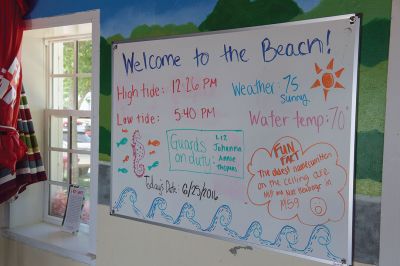 Welcome to the Beach!
High tide: 12:26 PM
Low tide: 5:40 PM
Weather: 75
Sunny
Water temp: 70°
Guards
on duty:
Liz
Johanna
Annie
Today's Date: 6/25/2016
FUN
FACT
The oldest name written
on the ceiling are
in
1959